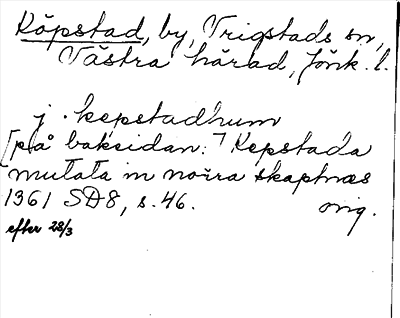 Köpstad, by, Vrigstads sn,
Västra härad, Jönk. l.
j. kepstadhum
[på baksidan:] Kepstada
mutata in norra skaptnæs
1361 SD8, s. 46. orig.
efter 28/3